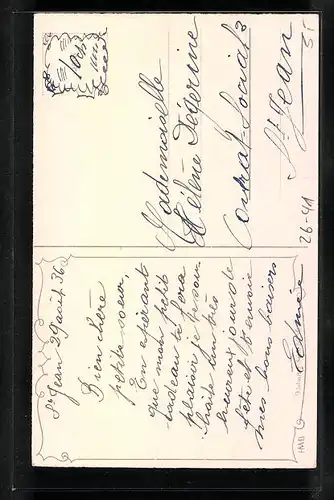 St Jean 29 août 36.
Bien chère
petite sœur,
En espérant
que mon petit
cadeau te fera
plaisir je te sou-
haite un très
heureux jour de
fête et t'envoie
mes bons baisers
Mademoiselle
Hélène
Contrat-Social 3
St. Jean
26-41